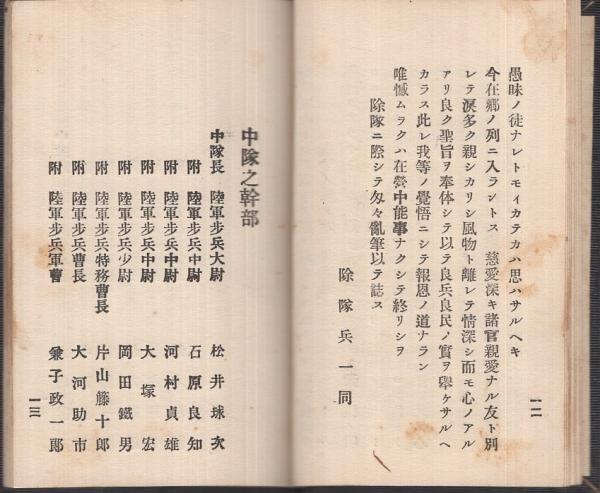 愚昧ノ徒ナレトモイカテカハ思ハサルヘキ
今在郷ノ列ニ入ラントス　慈愛深キ諸官親愛ナル友ト別
レテ涙多ク親シカリシ風物ト離レテ情深シ而モ心ノアル
アリ良ク聖旨ヲ奉体シテ以テ良兵良民ノ實ヲ擧ケサルヘ
カラス此レ我等ノ覺悟ニシテ報恩ノ道ナラン
唯憾ムラクハ在營中能事ナクシテ終リシヲ
除隊ニ際シテ匆々亂筆以テ誌ス
除隊兵一同
一二
中隊之幹部
中隊長　陸軍步兵大尉　松井球次
附　陸軍步兵中尉　石原良知
附　陸軍步兵中尉　河村貞雄
附　陸軍步兵中尉　大塚宏
附　陸軍步兵少尉　岡田鐵男
附　陸軍步兵特務曹長　片山藤十郎
附　陸軍步兵曹長　大河助市
附　陸軍步兵軍曹　兼子政一郎
一三